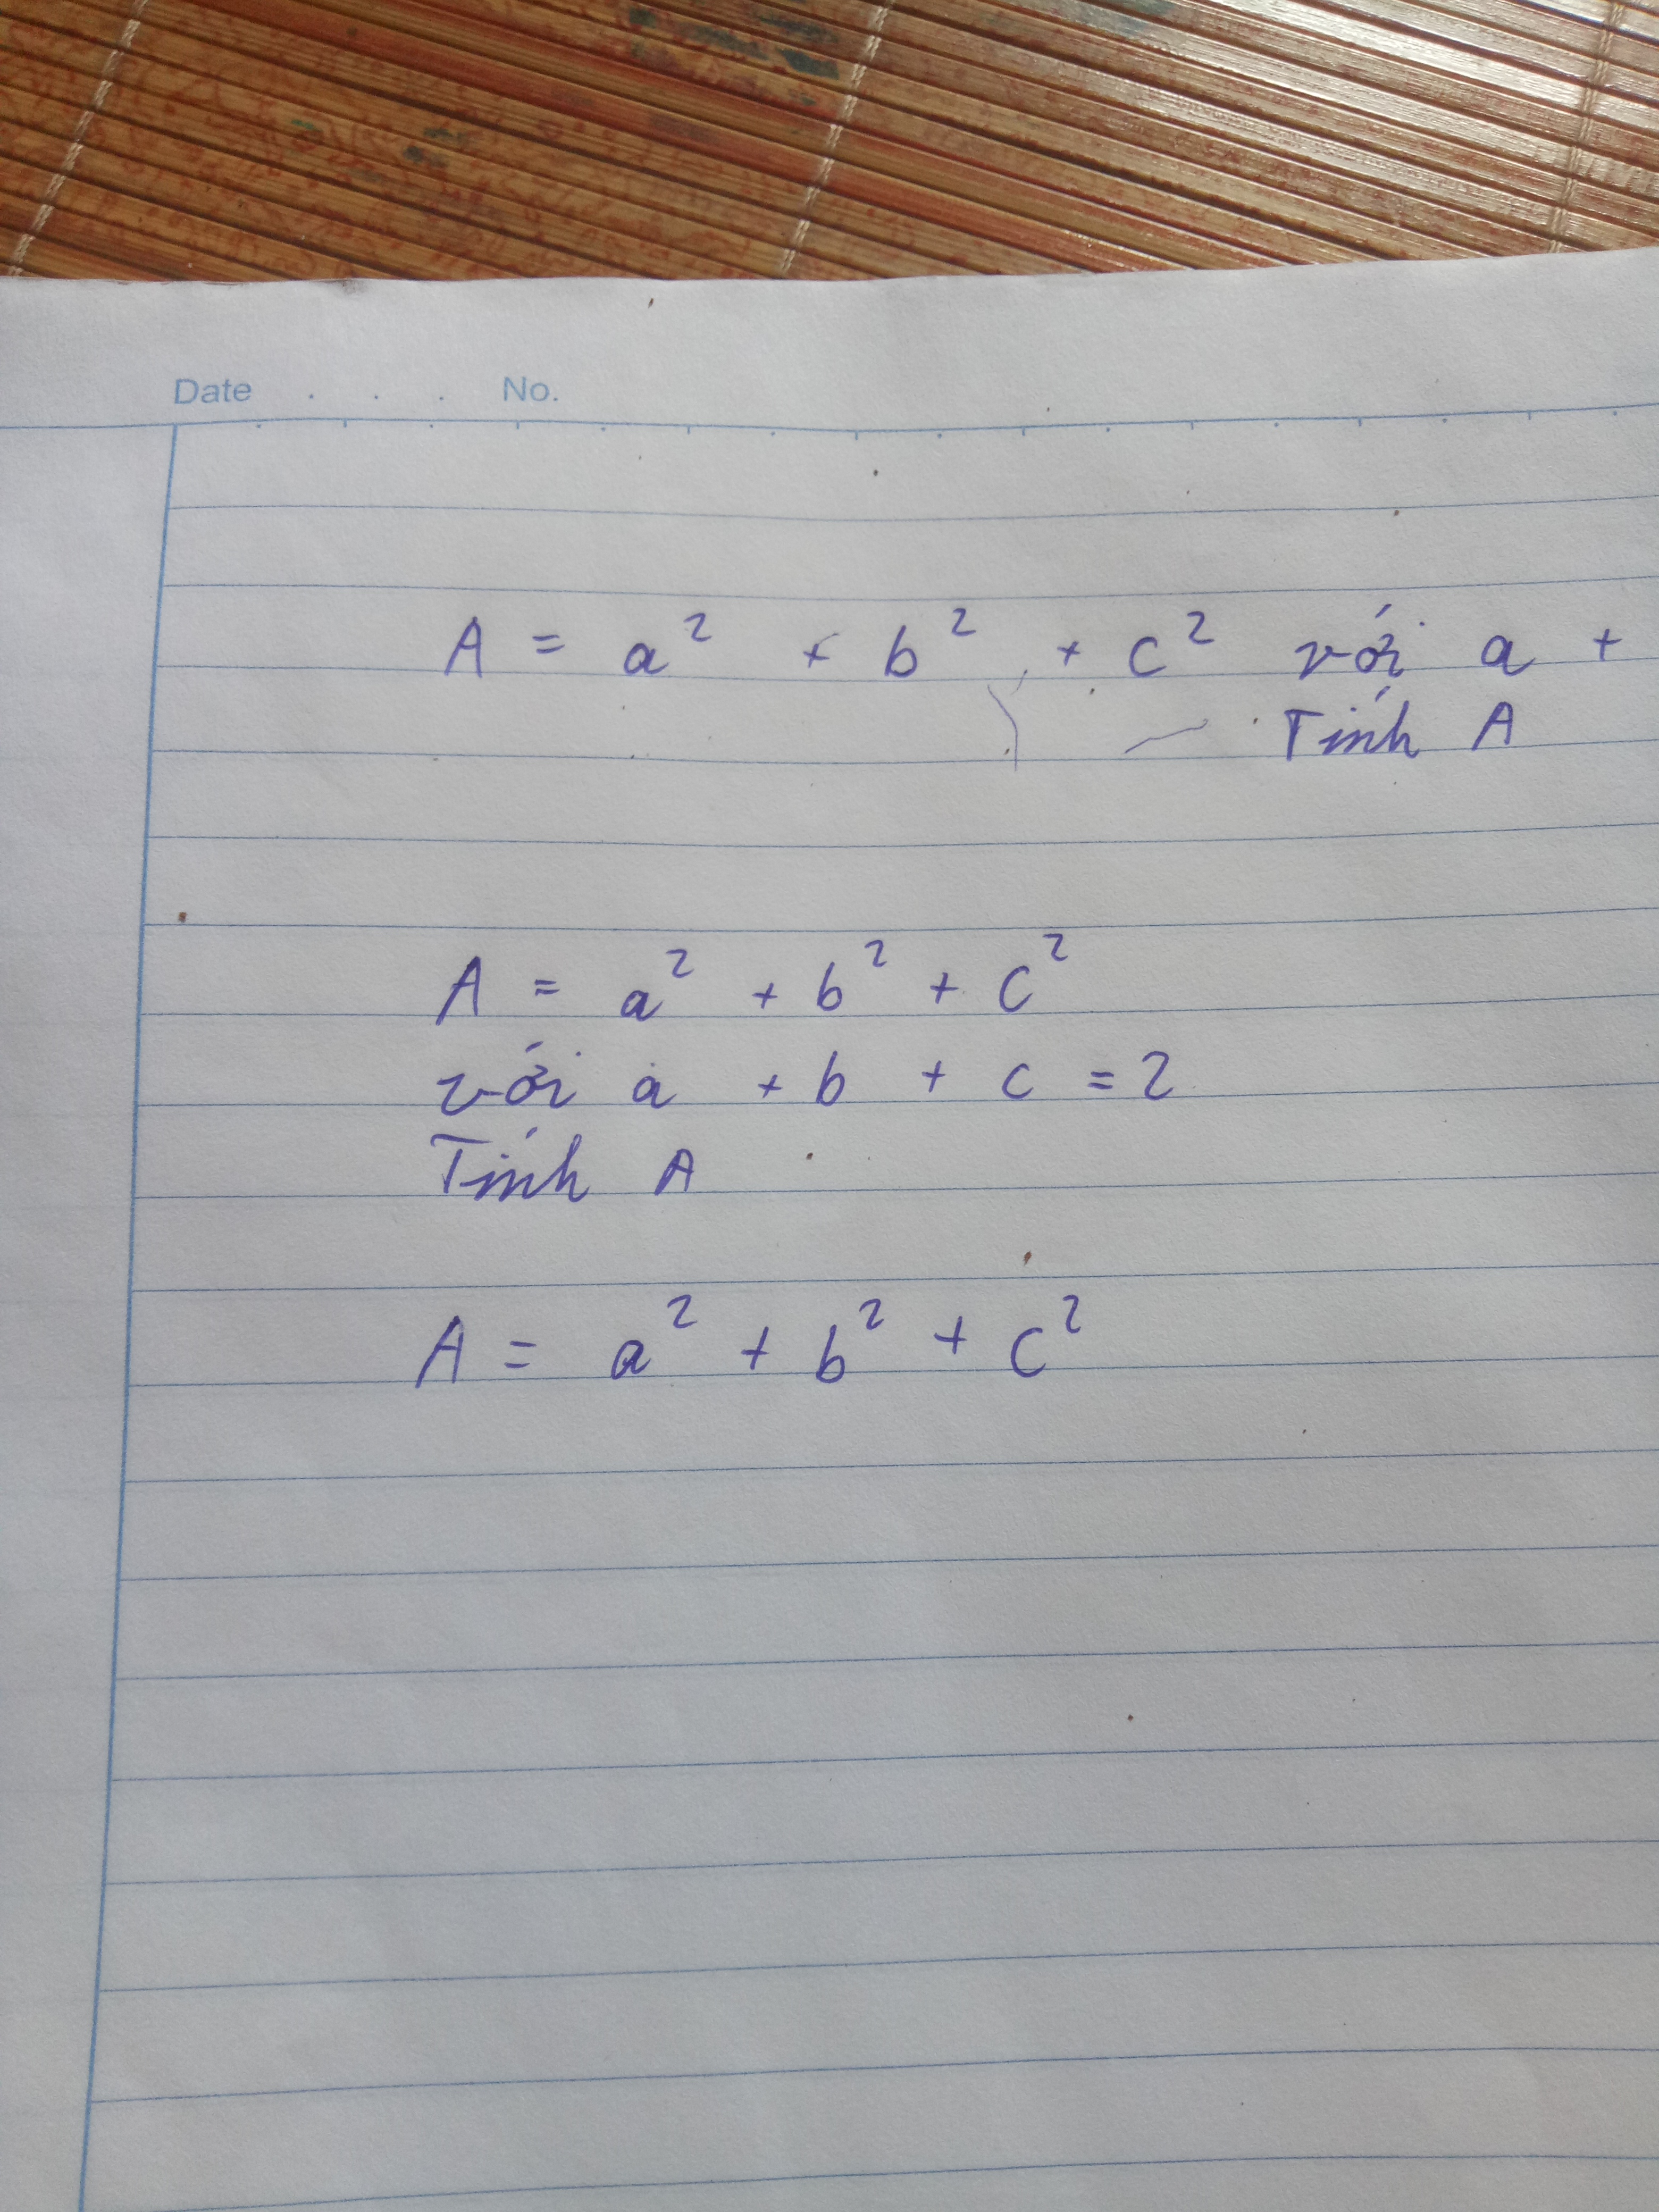 Date . . . No.
A = a² + b² + c² với a +
Tính A
A = a² + b² + c²
với a + b + c = 2
Tính A
A = a² + b² + c²